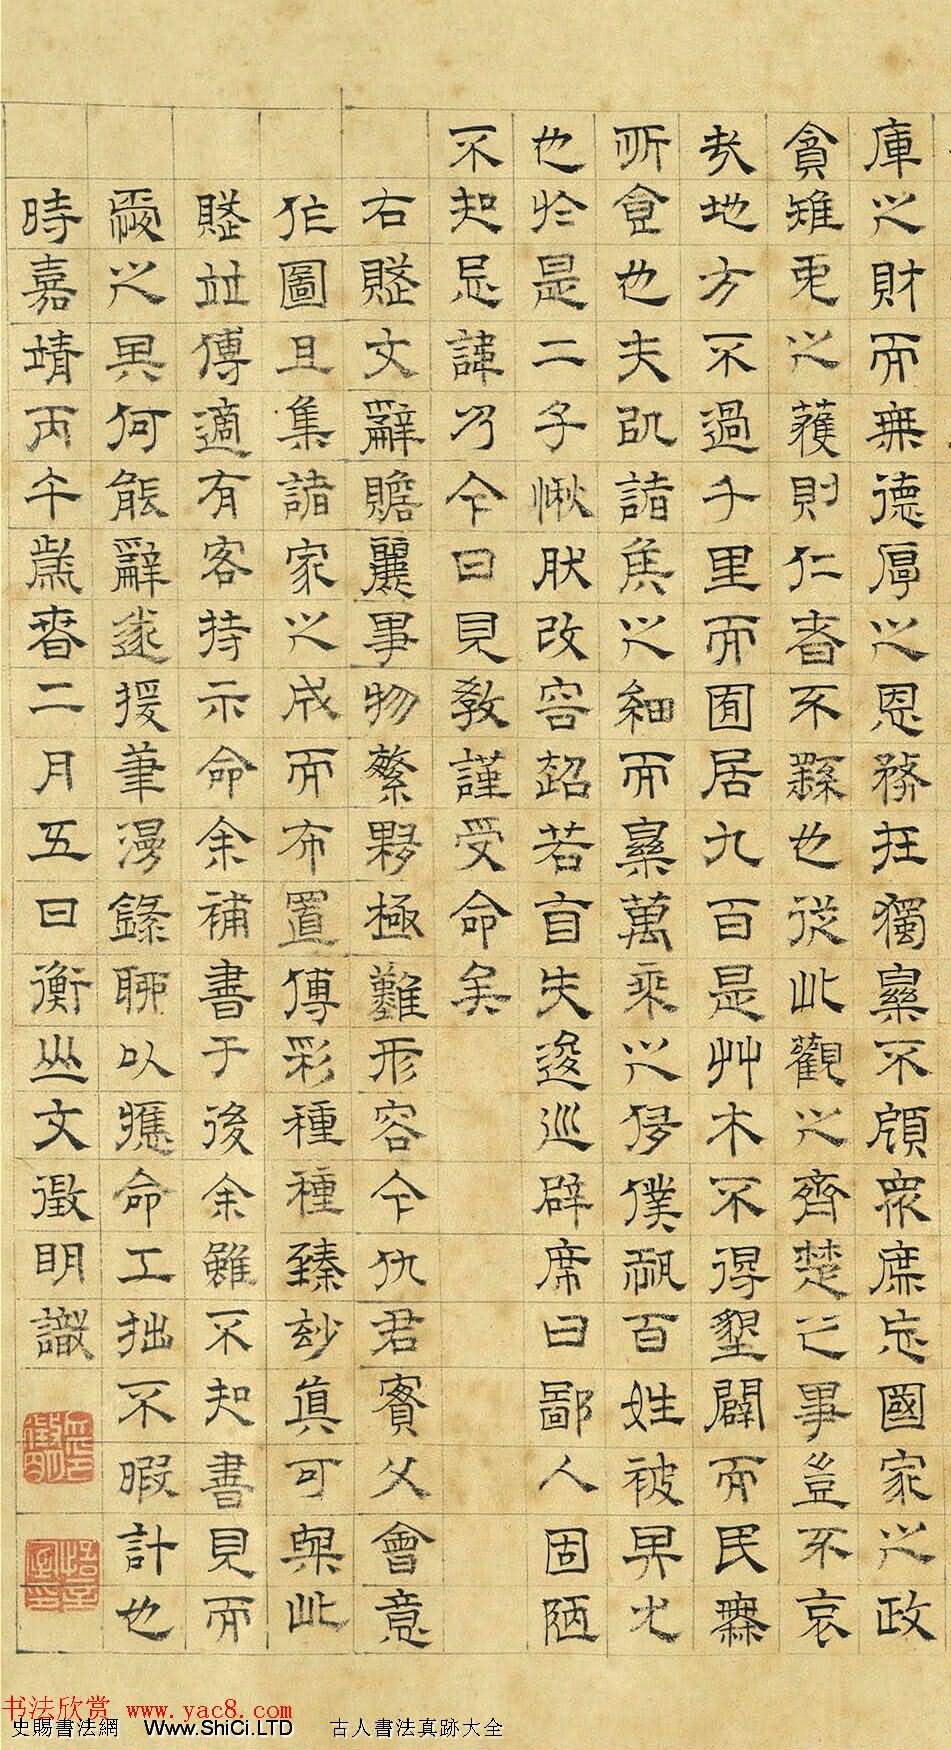 庫之財而無德厚之恩務在獨樂不顧衆庶忘國家之政
貪雉兔之獲則仁者不繇也從此觀之齊楚之事豈不哀
哉地方不過千里而囿居九百是艸木不得墾闢而民無
所食也夫以諸侯之細而樂萬乘之侈僕恐百姓被其尤
也於是二子愀然改容超若自失逡巡辟席曰鄙人固陋
不知忌諱乃今日見教謹受命矣
右賦文辭贍麗事物繁夥極難形容今仇君實父會意
作圖且集諸家之成而布置傅彩種種臻玅真可與此
賦並傳適有客持示命余補書于後余雖不知書見而
愛之其何能辭遂援筆漫錄聊以應命工拙不暇計也
時嘉靖丙午歲春二月五日衡山文徵明識
书法欣赏 www.yac8.com
史賜書法網 Www.ShiCi.LTD 古人書法真跡大全